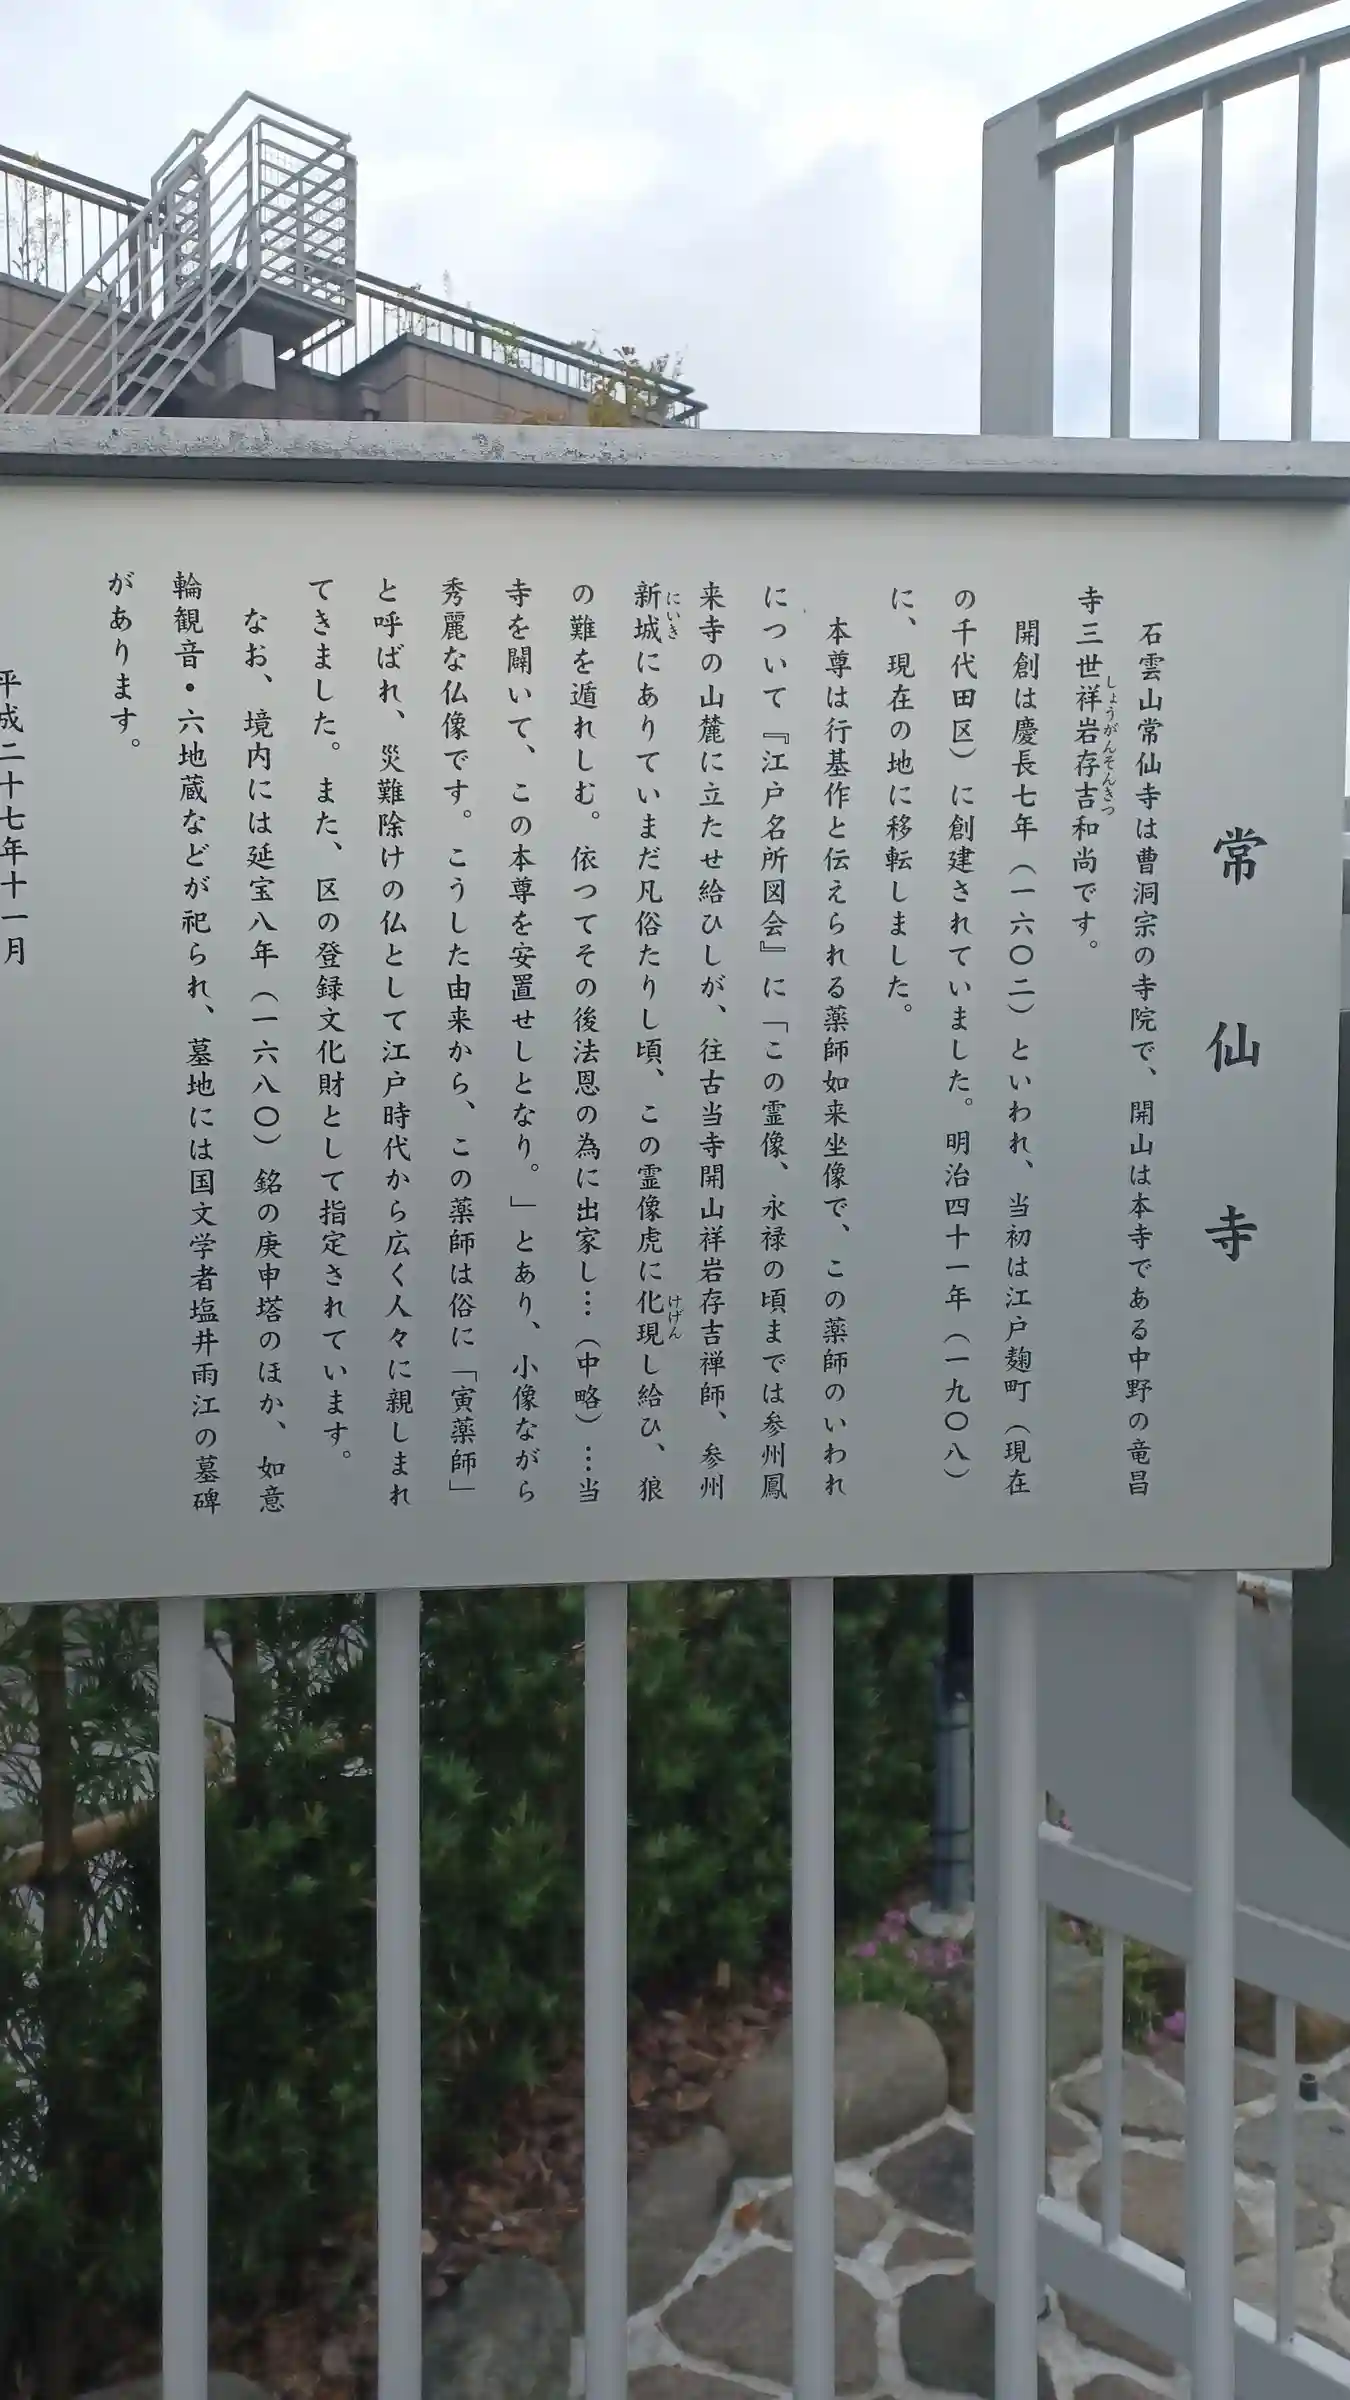 常仙寺
石雲山常仙寺は曹洞宗の寺院で、開山は本寺である中野の竜昌
寺三世祥岩存吉和尚です。
しょうがんそんきつ
開創は慶長七年（一六〇二）といわれ、当初は江戸麹町（現在
の千代田区）に創建されていました。明治四十一年（一九〇八）
に、現在の地に移転しました。
本尊は行基作と伝えられる薬師如来坐像で、この薬師のいわれ
について『江戸名所図会』に「この霊像、永禄の頃までは参州鳳
来寺の山麓に立たせ給ひしが、往古当寺開山祥岩存吉禅師、参州
新城にありていまだ凡俗たりし頃、この霊像虎に化現し給ひ、狼
にいき
けげん
の難を遁れしむ。依つてその後法恩の為に出家し…（中略）…当
寺を闢いて、この本尊を安置せしとなり。」とあり、小像ながら
秀麗な仏像です。こうした由来から、この薬師は俗に「寅薬師」
と呼ばれ、災難除けの仏として江戸時代から広く人々に親しまれ
てきました。また、区の登録文化財として指定されています。
なお、境内には延宝八年（一六八〇）銘の庚申塔のほか、如意
輪観音・六地蔵などが祀られ、墓地には国文学者塩井雨江の墓碑
があります。
平成二十七年十一月